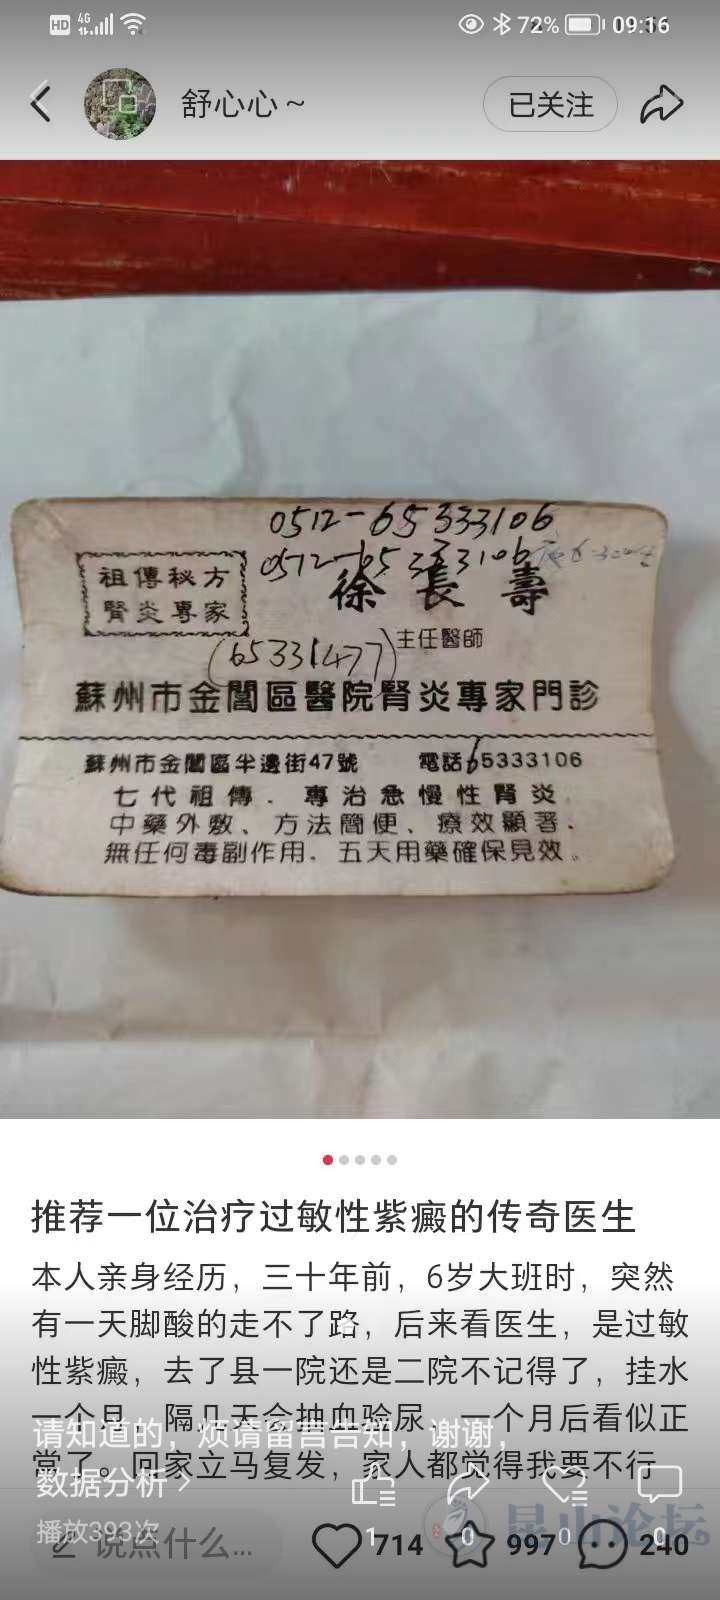 HD 4G 72% 09:16
舒心心~
已关注
0512-65333106
0512-65333106
祖傳秘方
腎炎專家
徐長壽
(65331477)
主任醫師
蘇州市金閶區醫院腎炎專家門診
蘇州市金閶區半邊街47號 電話65333106
七代祖傳．專治急慢性腎炎
中藥外敷、方法簡便、療效顯著．
無任何毒副作用．五天用藥確保見效。
推荐一位治疗过敏性紫癜的传奇医生
本人亲身经历，三十年前，6岁大班时，突然
有一天脚酸的走不了路，后来看医生，是过敏
性紫癜，去了县一院还是二院不记得了，挂水
一个月，隔几天会抽血验尿，一个月后看似正
请知道的，烦请留言告知，谢谢，
常了。回家立马复发，家人都觉得我要不行
数据分析>
播放393次
说点什么...
1 0 0 0
714 997 240
昆山论坛